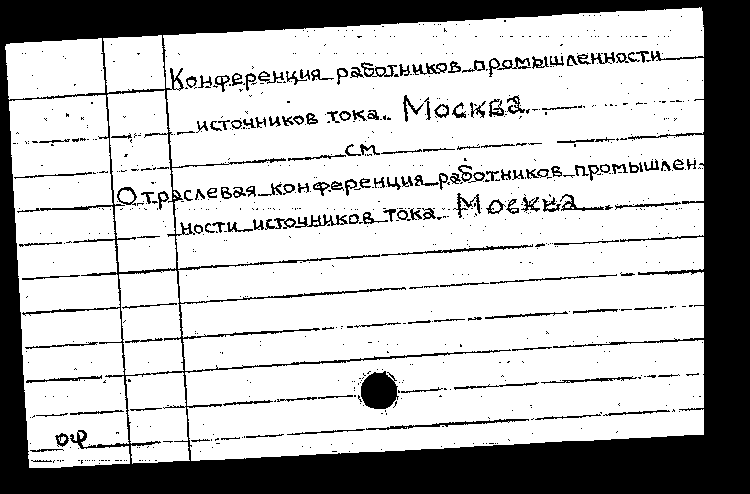 Конференция работников промышленности
источников тока. Москва.
см
Отраслевая конференция работников промышлен-
ности источников тока. Москва
оф